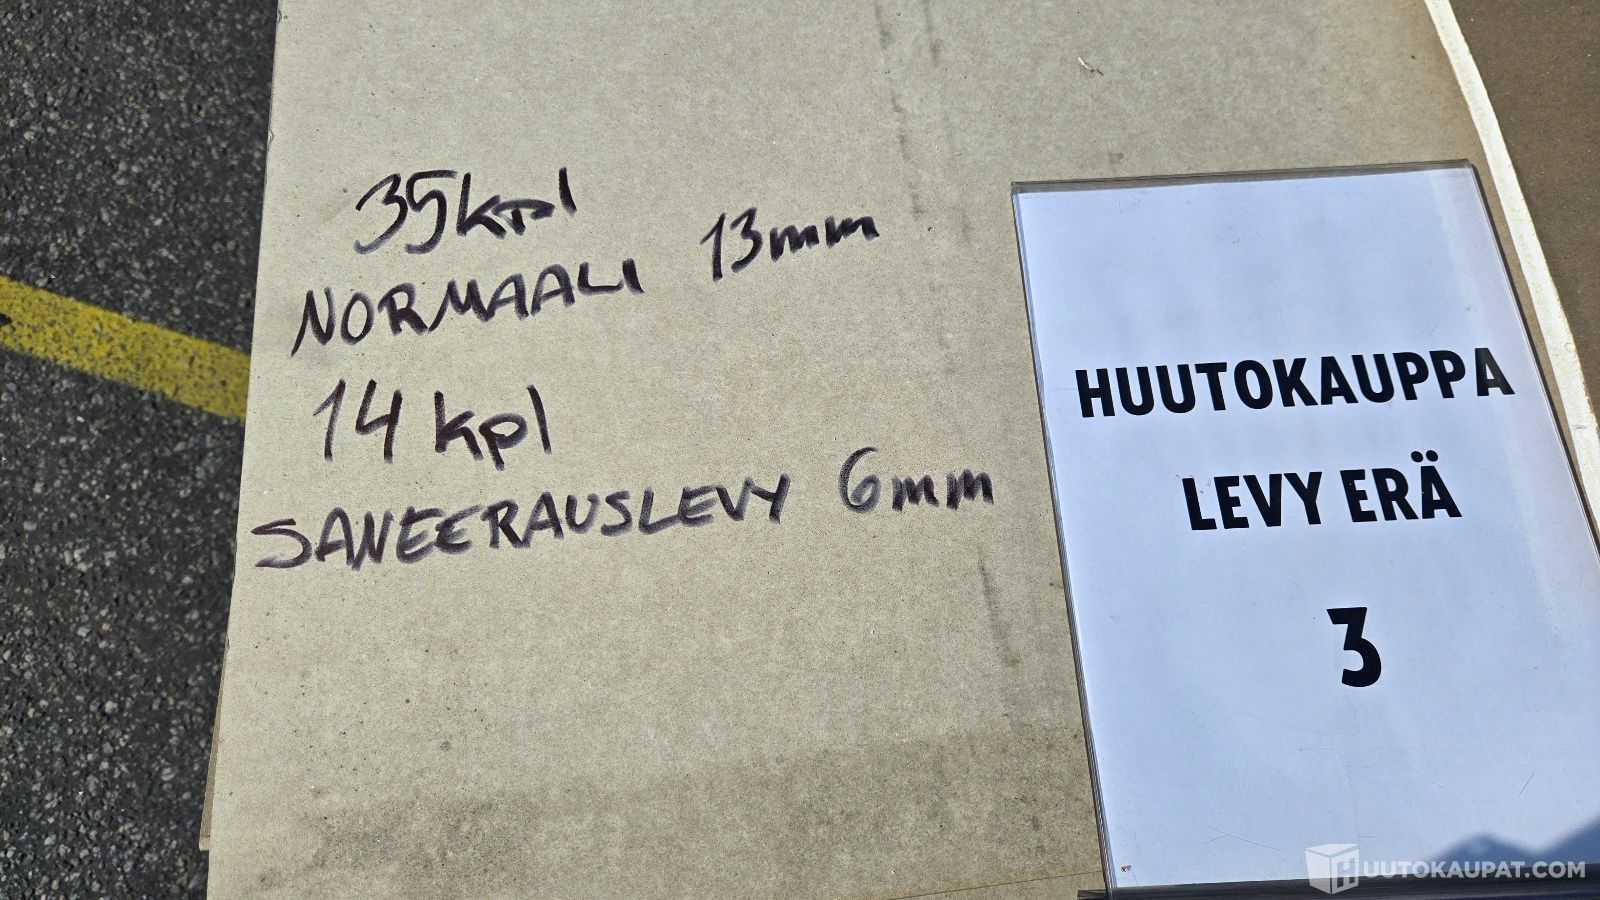 35kpl
NORMAALI 13mm
14 kpl
SANEERAUSLEVY 6mm
HUUTOKAUPPA
LEVY ERÄ
3
HUUTOKAUPAT.COM